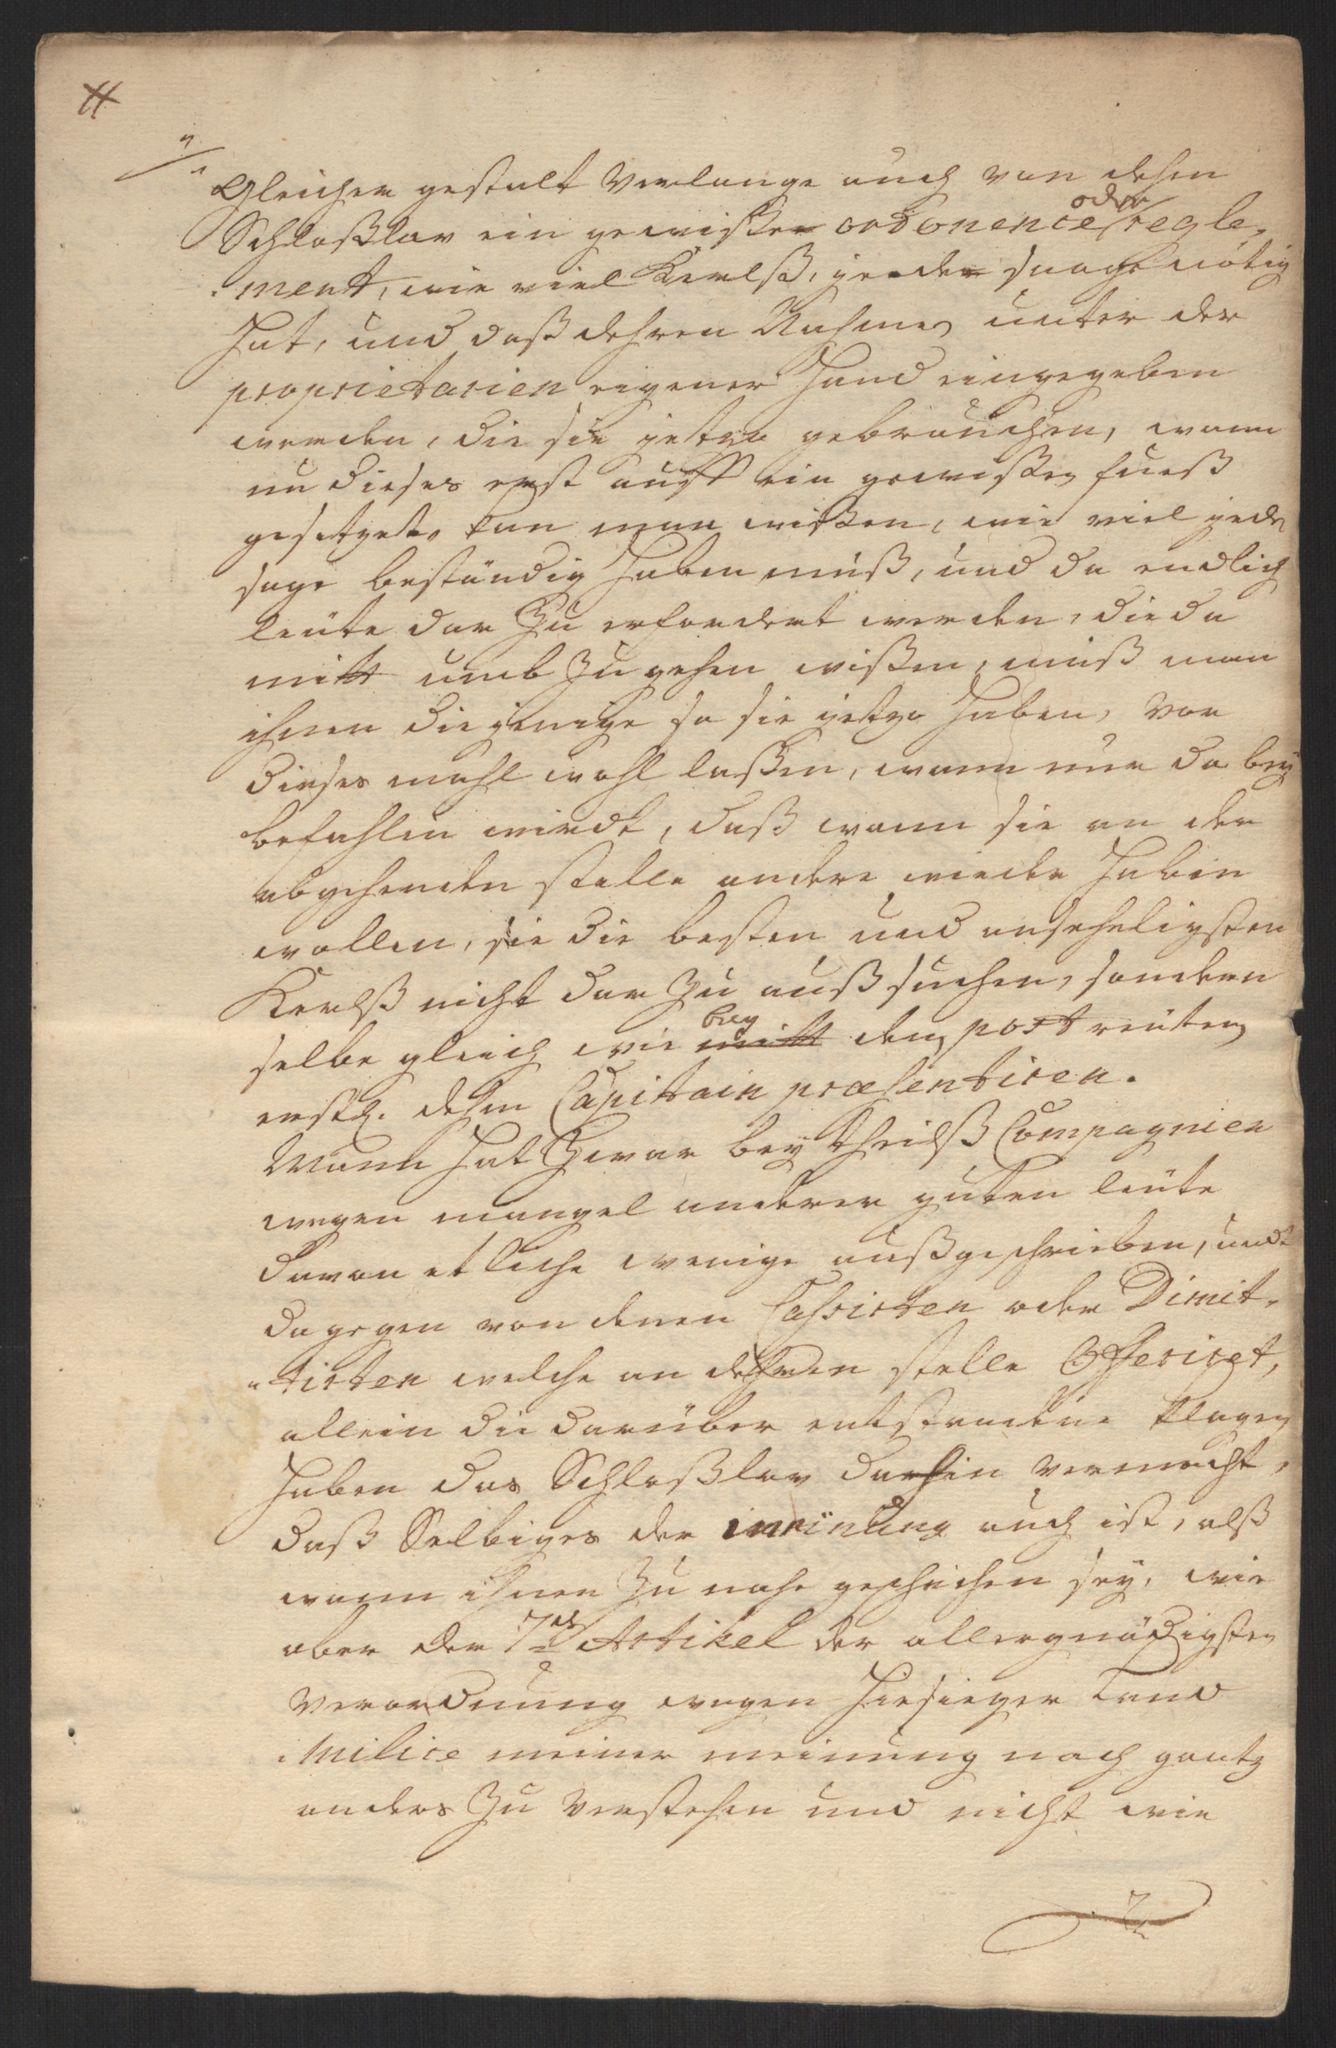 #
7
Gleicher gestalt verlange auch von dehm
Schloßlav ein gewißer ordonence oder regle„
„ment, wie viel Kerlß, jeeder saage nötig
hat, und daß dehren Nahmen unter der
proprietarien eigener Hand eingegeben
werden, die sie jetzo gebrauchen, wann
nu dieses erst auff ein gewißen fueß
gesetzet, kan man wißen, wie viel jede
sage beständig haben müß, und da endlich
leüte dar Zu erfordert werden, die da
mitt umb Zu gehen wißen, müß man
ihnen diejenige so sie jetzo haben, vor
dieses mahl wohl laßen, wann nur da bey
befahlen wirdt, daß wann sie an der
abgehenden stelle andere wieder haben
wollen, sie die besten und ansehligsten
Kerlß nicht dar Zu außsuchen, sondern
selbe gleich wie mitt bey den postreütern
erstl. dehm Capitain præsentiren.
Mann hat Zwar bey theilß Compagnien
wegen mangel anderer guten leüte
davon etliche wenige außgeschrieben, undt
dagegen von denen Cassirten oder Dimit„
„tirten welche an dehren stelle Offeriret,
allein die darüber entstandene klagen
haben das Schloßlav dahin vermocht,
daß Selbiges der meinung auch ist, alß
wann ihnen Zu nahe geschehen sey, wie
aber der 7de Artikel der allergnädigsten
Verordnung wegen hiesieger Land
Milice meiner meinung nach gantz
anders Zu verstehen und nicht wie